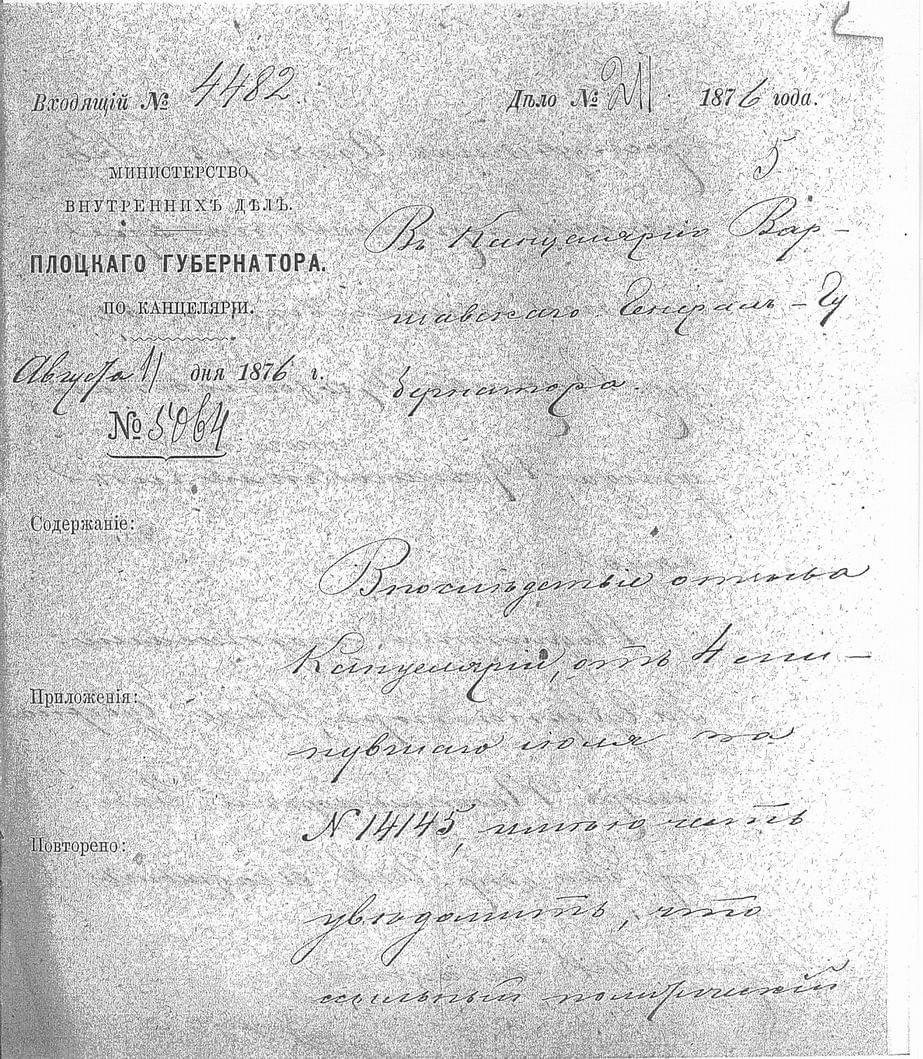 Входящій № 4482.
Дѣло № 211. 1876 года.
5
МИНИСТЕРСТВО
ВНУТРЕННИХЪ ДѢЛЪ.
ПЛОЦКАГО ГУБЕРНАТОРА.
ПО КАНЦЕЛЯРІИ.
Августа 11 дня 1876 г.
№ 5064
Въ Канцелярію Вар-
шавскаго Генералъ-Гу
бернатора.
Содержаніе:
Приложенія:
Повторено:
Впослѣдствіе отзыва
Канцеляріи, отъ 4 ми-
нувшаго іюля за
N 14145, имѣю честь
увѣдомить, что
ссыльный политическій